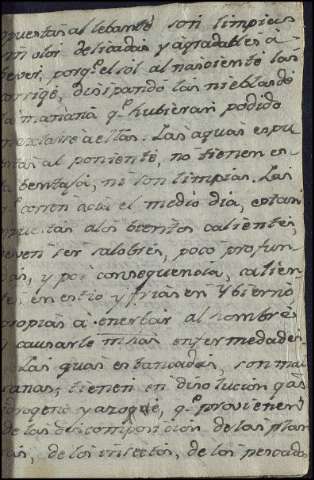 opuestas al lebante son limpias
olor delicadas y agradables á
bever, porqe. el sol al nasciente las
corrige, disipando las nieblas de
la mañana qe. hubieran podido
mexclarse a ellas. Las aguas espu
estas al poniente, no tienen es
ta bentaja, ni son limpias. Las
qe. corren acia el medio dia, estan
espuestas alos bientos calientes,
deven ser salobres, poco profun
das, y por conseguencia, calien
tes en estio y frias en Ybierno
propias á enerbar al hombre
y causarle muchas enfermedades
Las guas estancadas, son mal
sanas; tienen en disolucion gas
idrogeno y azogue, qe. provienen
de la descomposicion de las plan
tas, de los insectos, de los pescado